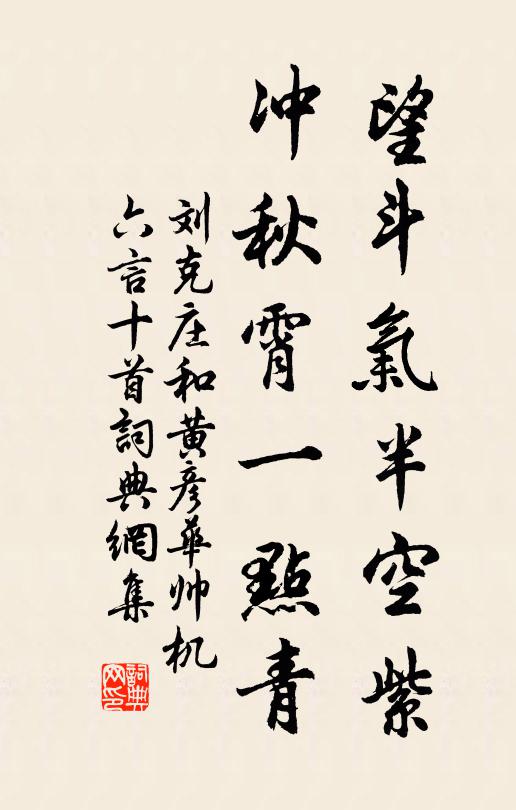 望斗氣半空紫
冲秋霄一點青
刘克庄和黄彦華帅机
六言十首詞典網集
詞典
网印